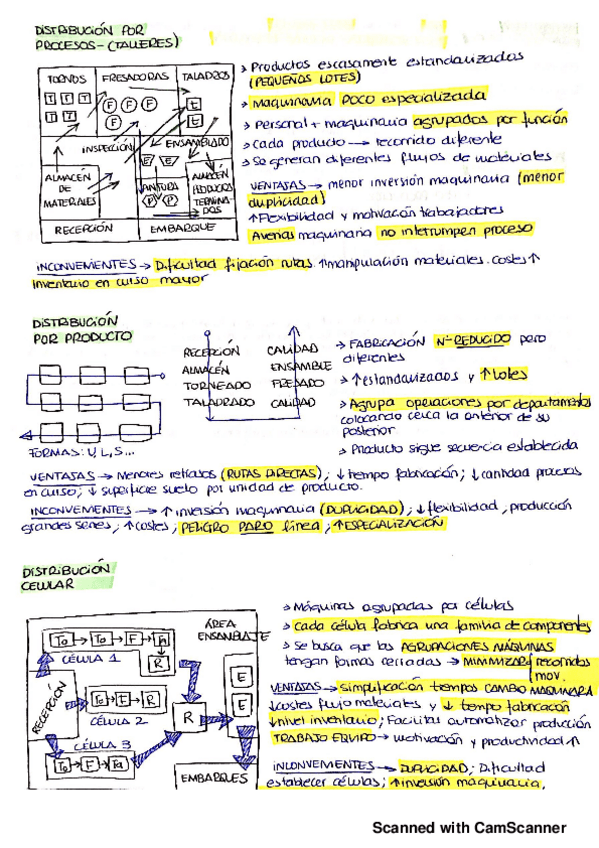 DISTRIBUCIÓN POR
PROCESOS-(TALLERES)
TORNOS FRESADORAS TALADROS
T T T
T T
F F F
F F
t
t
INSPECCIÓN
ENSAMBLADO
E E
ALMACÉN
DE
MATERIALES
PINTURA
P P
ALMACÉN
PRODUCTOS
TERMINA-
DOS
RECEPCIÓN EMBARQUE
> Productos escasamente estandarizados
(PEQUEÑOS LOTES)
> Maquinaria POCO especializada
> Personal + maquinaria agrupados por función
> Cada producto → recorrido diferente
> Se generan diferentes flujos de materiales
VENTAJAS → menor inversión maquinaria (menor
duplicidad)
↑Flexibilidad y motivación trabajadores
Averías maquinaria no interrumpen proceso
INCONVENIENTES → Dificultad fijación rutas. ↑manipulación materiales. costes↑
Inventario en curso mayor
DISTRIBUCIÓN
POR PRODUCTO
FORMAS: U, L, S...
RECEPCIÓN CALIDAD
ALMACÉN ENSAMBLE
TORNEADO FRESADO
TALADRADO CALIDAD
> FABRICACIÓN Nº REDUCIDO pero
diferentes
> ↑estandarizados y ↑Lotes
> Agrupa operaciones por departamentos
colocando cerca la anterior de su
posterior
> Producto sigue secuencia establecida
VENTAJAS → Menores retrasos (RUTAS DIRECTAS); ↓tiempo fabricación; ↓cantidad
en curso; ↓ superficie suelo por unidad de producto.
INCONVENIENTES → ↑ inversión maquinaria (DUPLICIDAD); ↓flexibilidad, producción
grandes series; ↑costes; PELIGRO PARO línea; ↑ESPECIALIZACIÓN
DISTRIBUCIÓN
CELULAR
ÁREA
ENSAMBLAJE
To To F Ta
R
CÉLULA 1
RECEPCIÓN
To F R
CÉLULA 2
R
E
E
CÉLULA 3
To F Ta
EMBARQUES
> Máquinas agrupadas por células
> Cada célula fabrica una familia de componentes
> Se busca que las AGRUPACIONES MÁQUINAS
tengan formas cerradas → MINIMIZAR recorridos
mov.
VENTAJAS → Simplificación tiempos CAMBIO MAQUINARIA
↓costes flujo materiales y ↓ tiempo fabricación
↓nivel inventario; Facilitas automatizar producción
TRABAJO EQUIPO → motivación y productividad ↑
INCONVENIENTES → DUPLICIDAD; Dificultad
establecer células; ↑inversión maquinaria.
Scanned with CamScanner